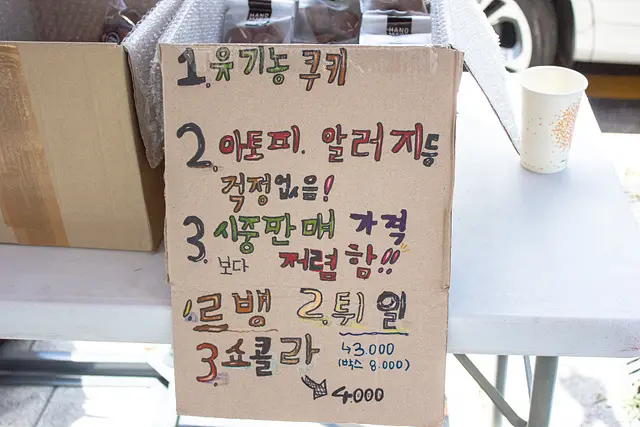 HAND
HAND
1. 유기농 쿠키
2. 아토피. 알러지등
걱정없음!
3. 시중판매 가격
보다 저렴함!!
1. 르뱅 2. 튀일
3. 쇼콜라
43.000
(박스 8.000)
4.000